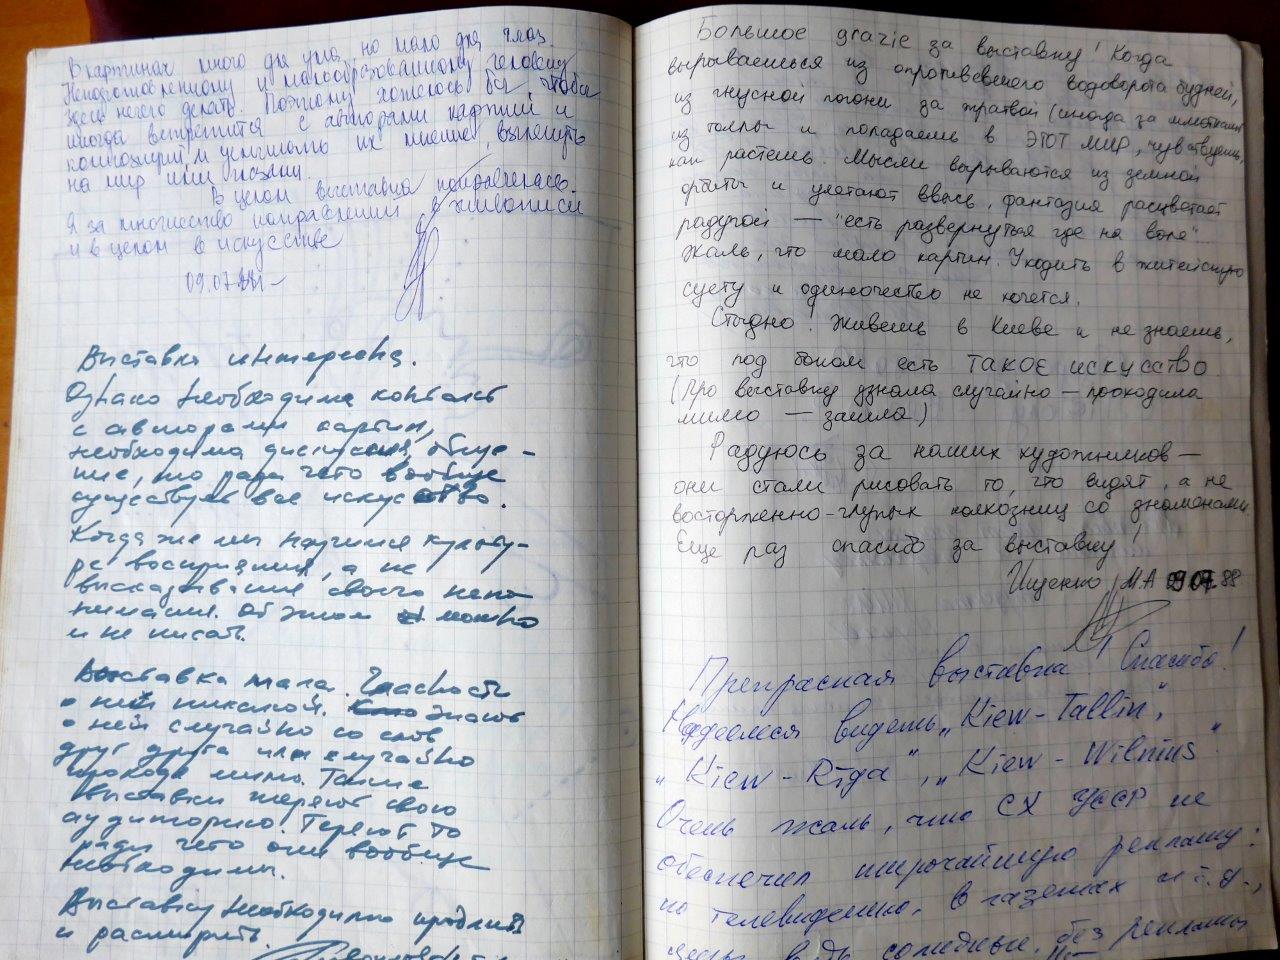 В картинах много для ума, но мало для глаз.
Неподготовленному и малообразованному человеку
здесь нечего делать. Поэтому хотелось бы, чтобы
иногда встретится с авторами картин и
композиций и услышать их мнение, взглянуть
на мир их глазами.
В целом выставка понравилась.
Я за множество направлений в живописи
и в целом в искусстве
09.07.88
Выставка интересна.
Однако необходима контакты
с авторами картин,
необходима дискуссия, обще-
ние, то ради чего вообще
существует все искусство.
Когда же мы научимся культу-
ре восприятия, а не
высказывания своего непо-
нимания. Об этом можно
и не писать.
Выставка мала. Гласности
о ней никакой. Знают
о ней случайно со слов
друг друга или случайно
проходя мимо. Такие
выставки теряют свою
аудиторию. Теряют то
ради чего они вообще
необходимы.
Выставку необходимо продлить
и расширить.
Большое grazie за выставку! Когда
вырываешься из опротивевшего водоворота будней,
из гнусной погони за жратвой (иногда за шмотками)
из толпы и попадаешь в ЭТОТ МИР, чувствуешь,
как растешь. Мысли вырываются из земной
орбиты и улетают ввысь, фантазия расцветает
радугой — "есть развернуться где на воле".
Жаль, что мало картин. Уходить в житейскую
суету и одиночество не хочется.
Стыдно! Живешь в Киеве и не знаешь,
что под боком есть ТАКОЕ искусство
(Про выставку узнала случайно — проходила
мимо — зашла)
Радуюсь за наших художников —
они стали рисовать то, что видят, а не
восторженно-глупых колхозниц со знаменами.
Еще раз спасибо за выставку!
Ищенко М.А 09.07.88
Прекрасная выставка! Спасибо!
Надеемся видеть „Kiew-Tallin",
„Kiew-Rīga", „Kiew-Wilnius".
Очень жаль, что СХ УССР не
обеспечил широчайшую рекламу:
по телевидению, в газетах и т.д.,
ведь солидные, без рекламы